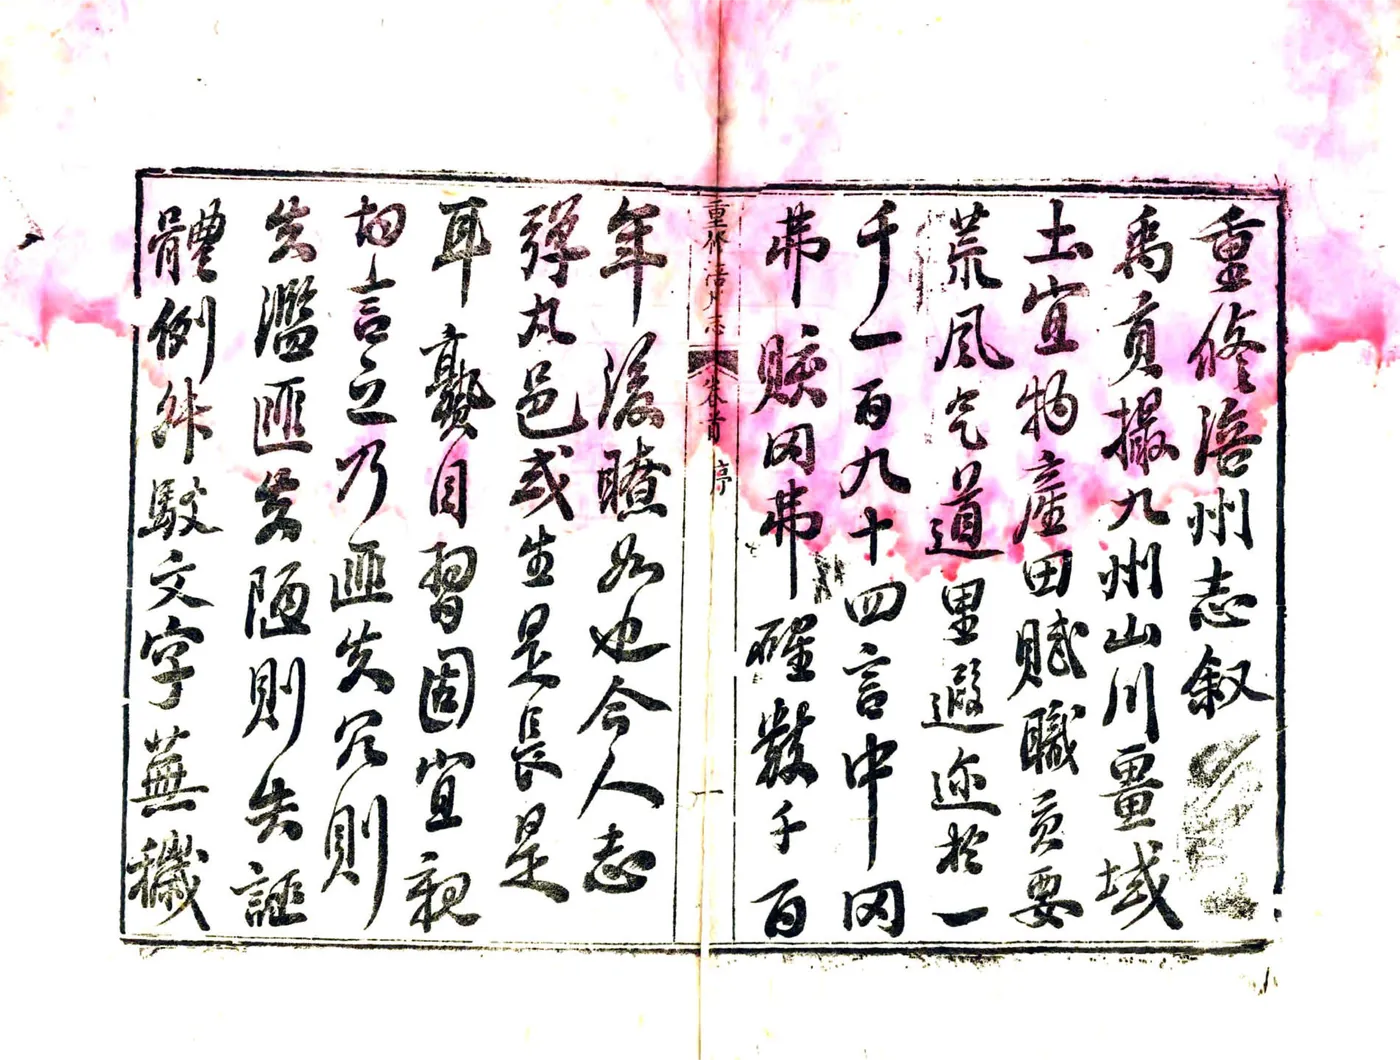 重修涪州志叙
禹貢撮九州山川畺域
土宜物產田賦職貢要
荒風气道里遐迩於一
千一百九十四言中罔
弗賅罔弗確數千百
重修涪州志 卷首 序 一
年後瞭如也今人志
彈丸邑或生是長是
耳熟目習固宜親
切言之乃匪失冗則
失濫匪失陋則失誣
體例舛駁文字蕪穢